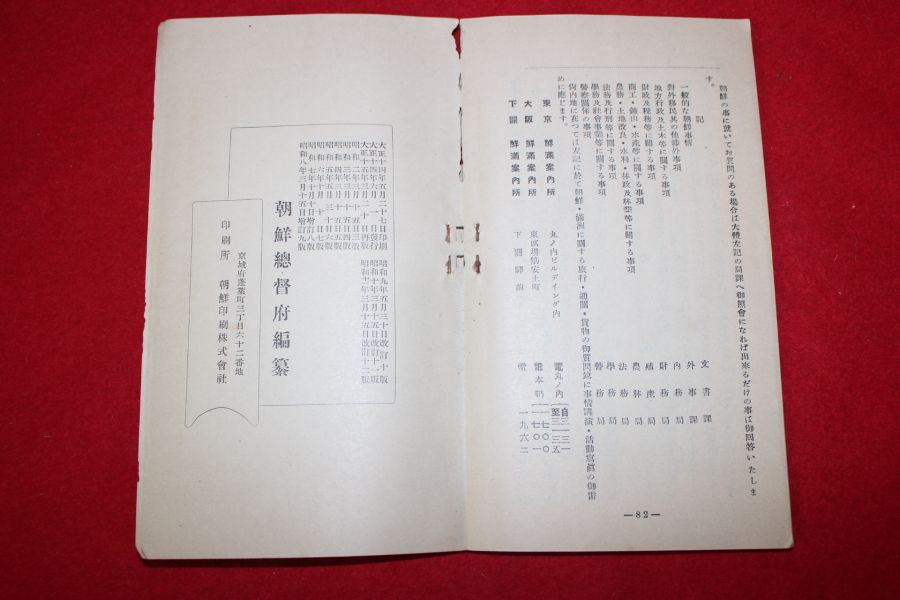 朝鮮の事に就いてお質問のある場合は大體左記の局課へ御照會になれば出來るだけの事は御囘答いたしま
す。
記
一般的な朝鮮事情 文書課
對外移民其の他渉外事項 外事課
地方行政及土木等に關する事項 內務局
財政及稅務等に關する事項 財務局
商工・鑛山・水產等に關する事項 殖產局
農務・土地改良・水利・林政及林業等に關する事項 農林局
法務及行刑等に關する事項 法務局
學務及社會事業等に關する事項 學務局
警察關係の事項 警務局
尙內地に在つては左記に於て朝鮮・滿洲に關する旅行・通關・貨物の御質問竝に事情講演・活動寫眞の御需
めに應じます。
東京 鮮滿案內所 丸ノ內ビルデイング內 電丸ノ內
大阪 鮮滿案內所 東區堺筋安土町 電本町
下關 鮮滿案內所 下關驛前 電 一九六二
—82—
大正十四年五月二十七日印刷
大正十四年六月一日發行
大正十五年三月二十日再版
昭和二年三月十五日三版
昭和三年三月十五日四版
昭和四年三月十五日五版
昭和五年五月三十日六版
昭和六年十月十日七版
昭和七年十月十日增訂八版
昭和八年三月十五日增訂九版
昭和九年五月三十日改訂十版
昭和十年三月十五日改訂十一版
昭和十一年三月十五日改訂十二版
朝鮮總督府編纂
京城府蓬萊町三丁目六十二番地
印刷所 朝鮮印刷株式會社